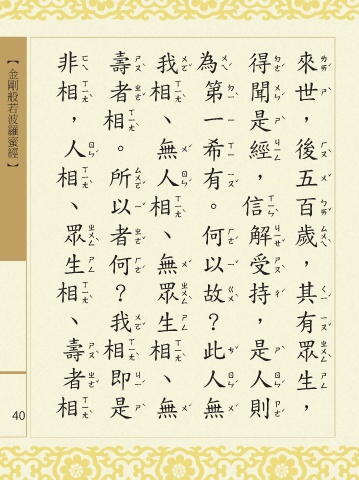 來世，後五百歲，其有眾生，
得聞是經，信解受持，是人則
為第一希有。何以故？此人無
我相、無人相、無眾生相、無
壽者相。所以者何？我相即是
非相，人相、眾生相、壽者相
【金剛般若波羅蜜經】
40